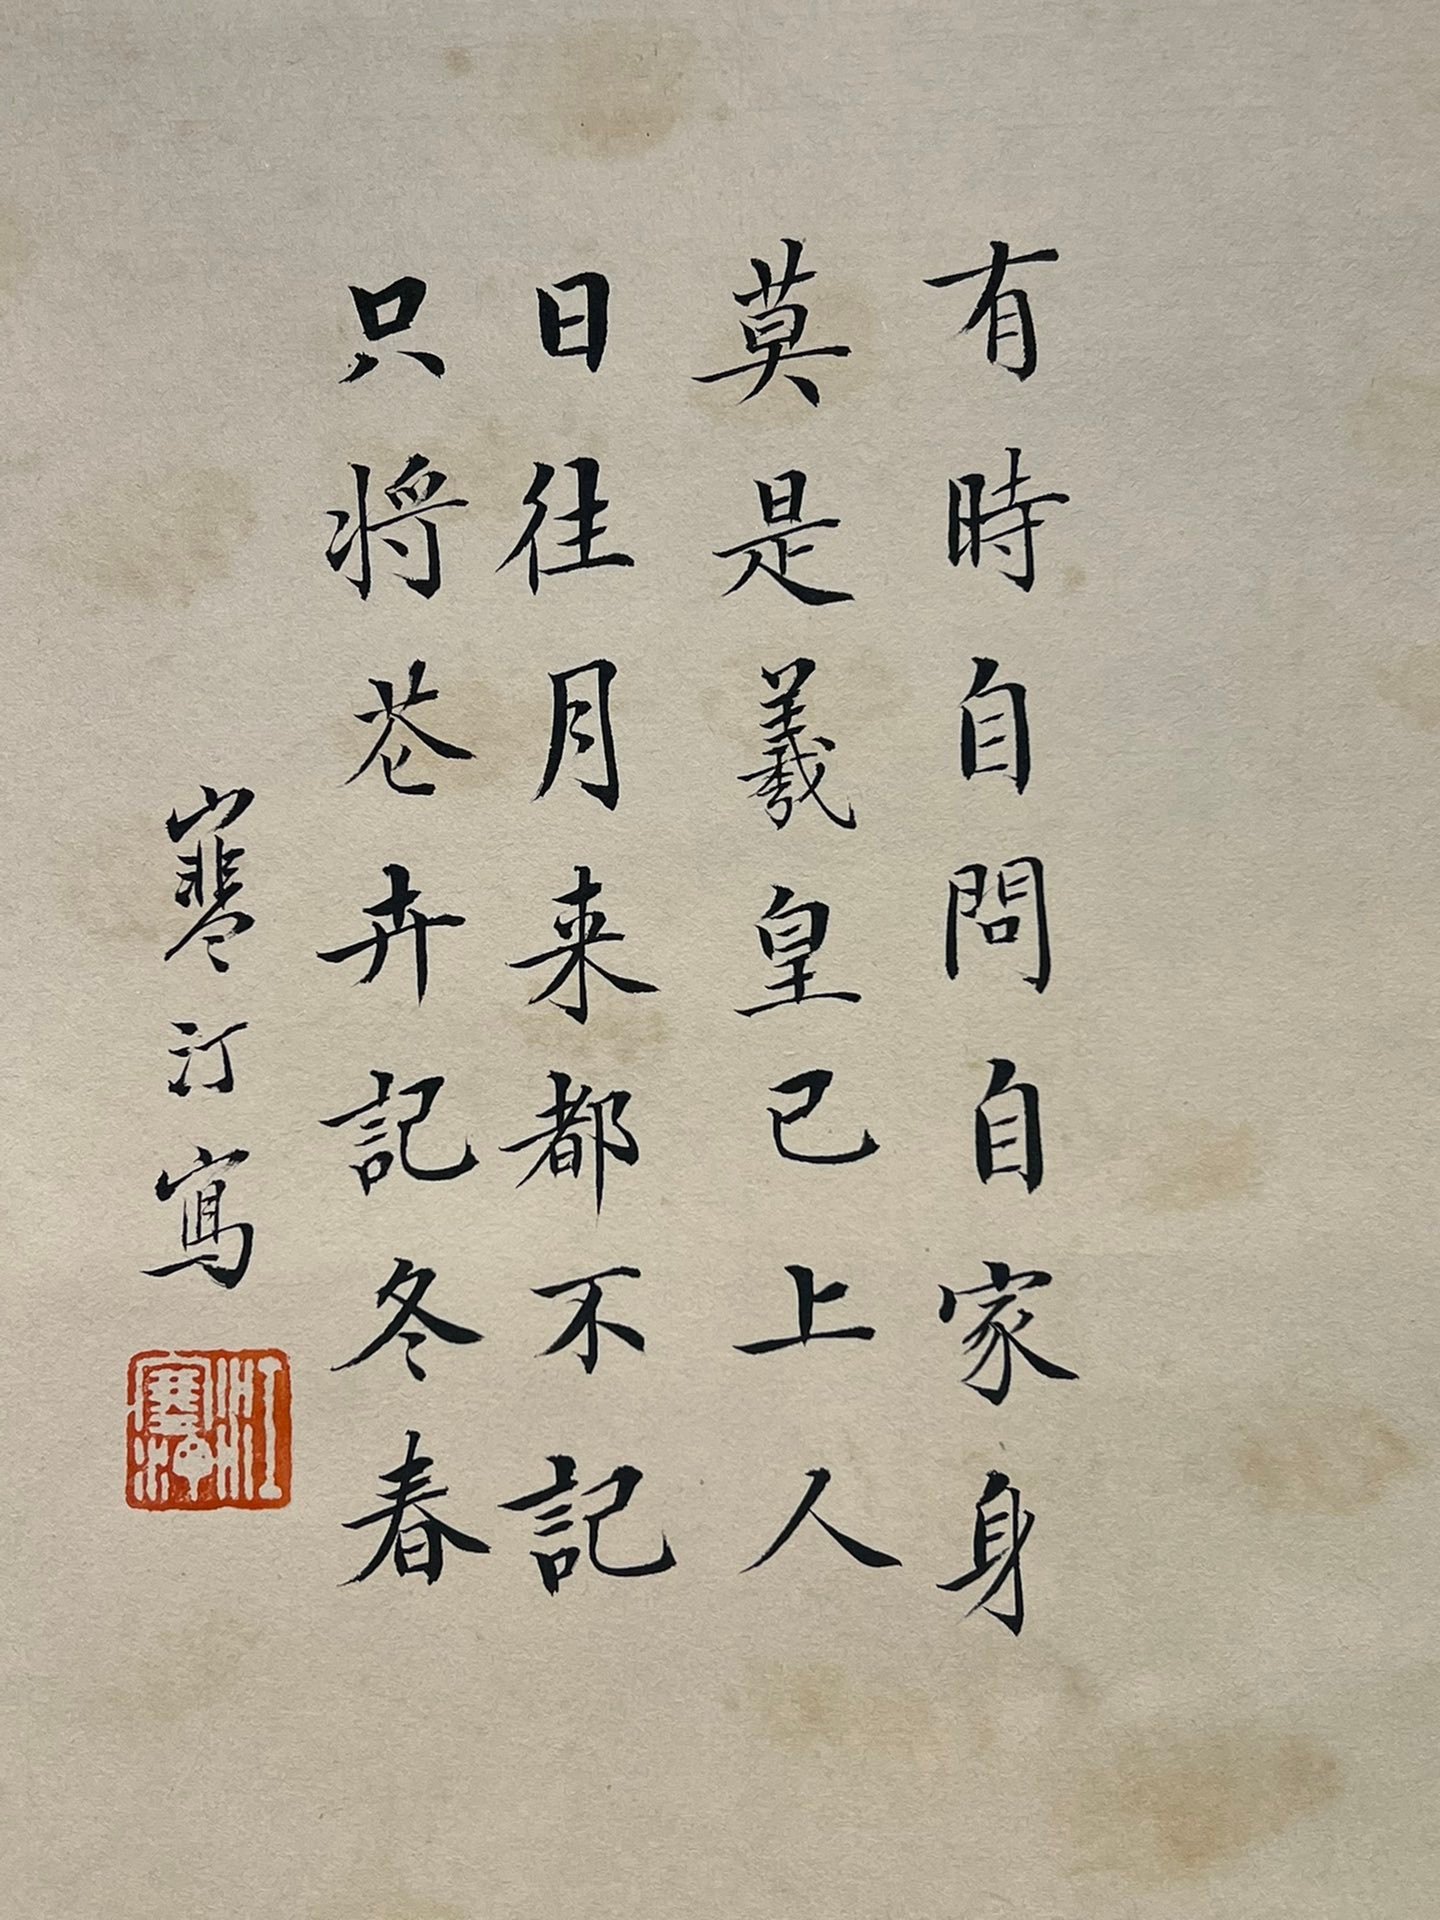 有時自問自家身
莫是羲皇已上人
日往月来都不記
只将花卉記冬春
寒汀寫